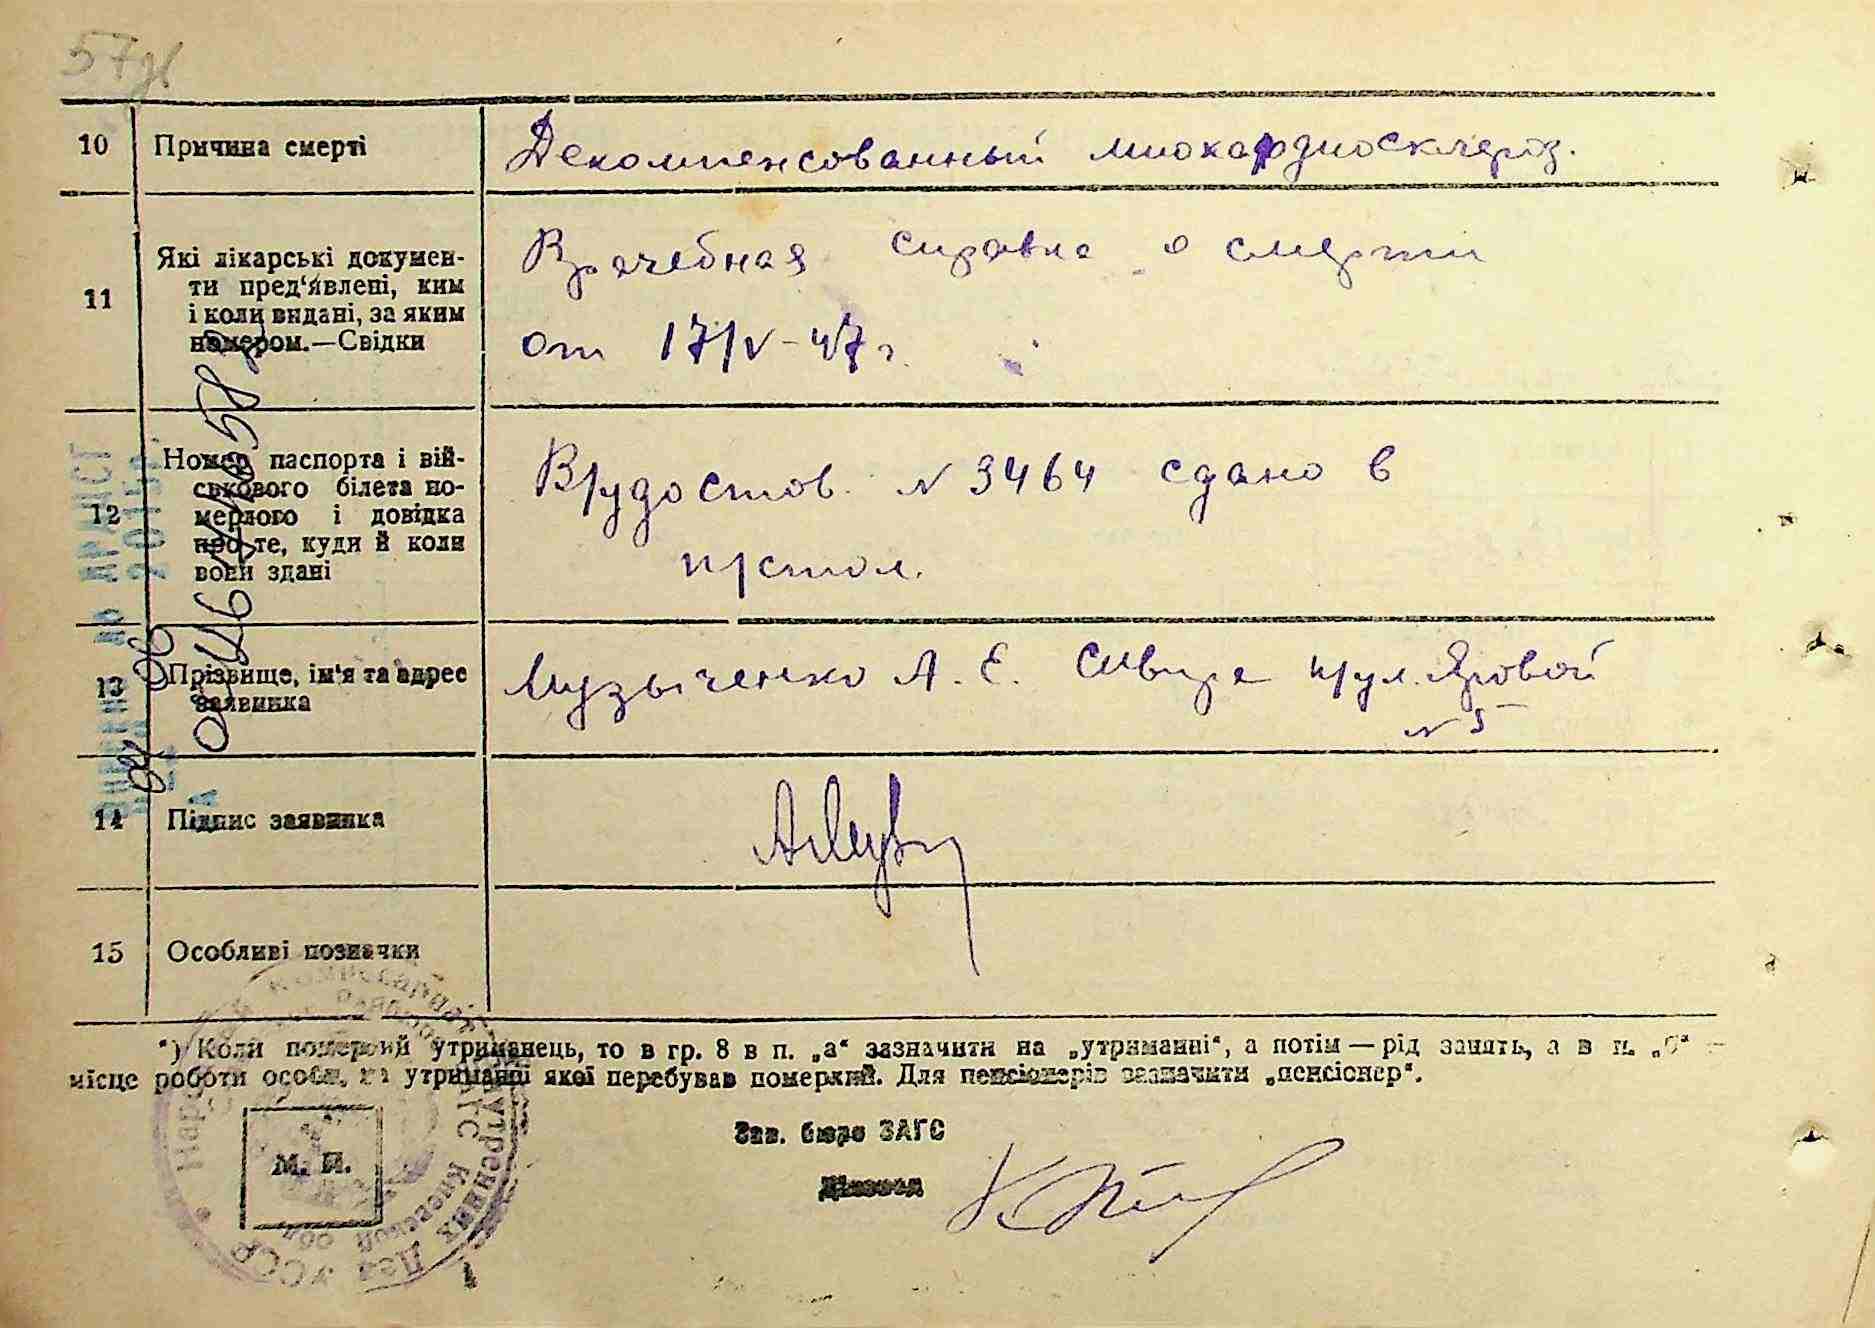 57
10 Причина смерті Декомпенсованный миокардиосклероз.
11 Які лікарські докумен-
ти пред'явлені, ким
і коли видані, за яким
номером.—Свідки
Врачебная справка о смерти
от 17/V-47г.
12 Номер паспорта і вій-
ськового білета по-
мерлого і довідка
про те, куди й коли
вони здані
Вр/удостов. N 3464 сдано в
п/стол.
13 Прізвище, ім'я та адрес
заявника
Музыченко А. Е. Сквира ул. Яровой
N 5
14 Підпис заявника
15 Особливі позначки
*) Коли померлий утриманець, то в гр. 8 в п. „а“ зазначити на „утриманні“, а потім — рід занять, а в п. „б“ —
місце роботи особи, на утриманні якої перебував померлий. Для пенсіонерів зазначити „пенсіонер“.
Зав. бюро ЗАГС
М. П.
Діловод